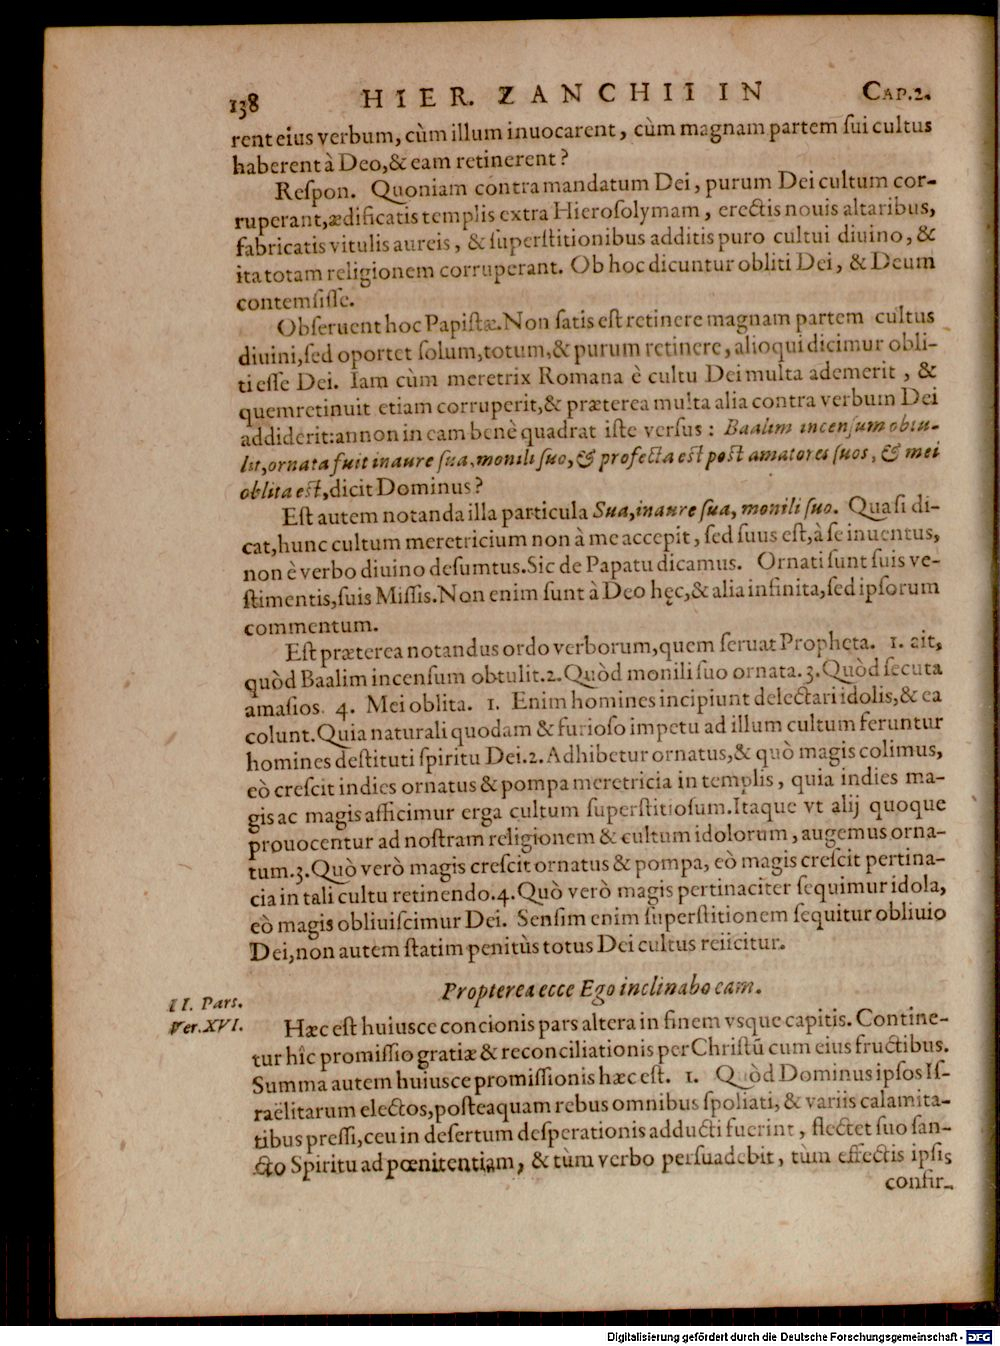 138 HIER. ZANCHII IN CAP.2.
rent eius verbum, cùm illum inuocarent, cùm magnam partem sui cultus
haberent à Deo,& eam retinerent?
Respon. Quoniam contra mandatum Dei, purum Dei cultum cor-
ruperant,ædificatis templis extra Hierosolymam, erectis nouis altaribus,
fabricatis vitulis aureis, & superstitionibus additis puro cultui diuino, &
ita totam religionem corruperant. Ob hoc dicuntur obliti Dei, & Deum
contemsisse.
Obseruent hoc Papistæ.Non satis est retinere magnam partem cultus
diuini,sed oportet solum,totum,& purum retinere, alioqui dicimur obli-
ti esse Dei. Iam cùm meretrix Romana è cultu Dei multa ademerit, &
quem retinuit etiam corruperit,& præterea multa alia contra verbum Dei
addiderit:annon in eam benè quadrat iste versus: Baalim incensum obtu-
lit,ornata fuit inaure sua,monili suo,& profecta est post amatores suos, & mei
oblita est,dicit Dominus?
Est autem notanda illa particula Sua,inaure sua, monili suo. Quasi di-
cat,hunc cultum meretricium non à me accepit, sed suus est,à se inuentus,
non è verbo diuino desumtus.Sic de Papatu dicamus. Ornati sunt suis ve-
stimentis,suis Missis.Non enim sunt à Deo hęc,& alia infinita,sed ipsorum
commentum.
Est præterea notandus ordo verborum,quem seruat Propheta. 1. ait,
quòd Baalim incensum obtulit.2.Quòd monili suo ornata.3.Quòd secuta
amasios. 4. Mei oblita. 1. Enim homines incipiunt delectari idolis,& ea
colunt.Quia naturali quodam & furioso impetu ad illum cultum feruntur
homines destituti spiritu Dei.2.Adhibetur ornatus,& quò magis colimus,
eò crescit indies ornatus & pompa meretricia in templis, quia indies ma-
gis ac magis afficimur erga cultum superstitiosum.Itaque vt alij quoque
prouocentur ad nostram religionem & cultum idolorum, augemus orna-
tum.3.Quò verò magis crescit ornatus & pompa, eò magis crescit pertina-
cia in tali cultu retinendo.4.Quò verò magis pertinaciter sequimur idola,
eò magis obliuiscimur Dei. Sensim enim superstitionem sequitur obliuio
Dei,non autem statim penitùs totus Dei cultus reiicitur.
Propterea ecce Ego inclinabo eam.
II. Pars.
Ver.XVI.
Hæc est huiusce concionis pars altera in finem vsque capitis. Contine-
tur hîc promissio gratiæ & reconciliationis per Christũ cum eius fructibus.
Summa autem huiusce promissionis hæc est. 1. Quòd Dominus ipsos Is-
raëlitarum electos,posteaquam rebus omnibus spoliati, & variis calamita-
tibus pressi,ceu in desertum desperationis adducti fuerint, flectet suo san-
cto Spiritu ad pœnitentiam, & tùm verbo persuadebit, tùm effectis ipsis
confir-
Digitalisierung gefördert durch die Deutsche Forschungsgemeinschaft - DFG